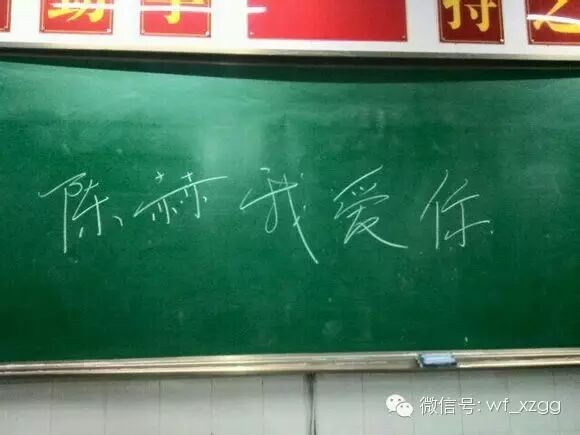 勤学
持之
陈赫我爱你
微信号: wf_xzgg